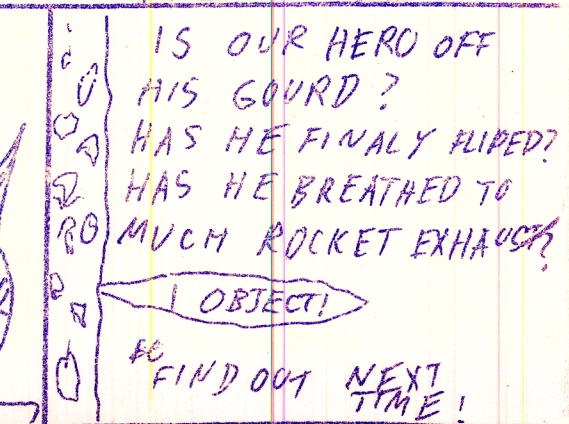 IS OUR HERO OFF
HIS GOURD?
HAS HE FINALY FLIPED?
HAS HE BREATHED TO
MUCH ROCKET EXHAUST?
I OBJECT!
FIND OUT NEXT
TIME!